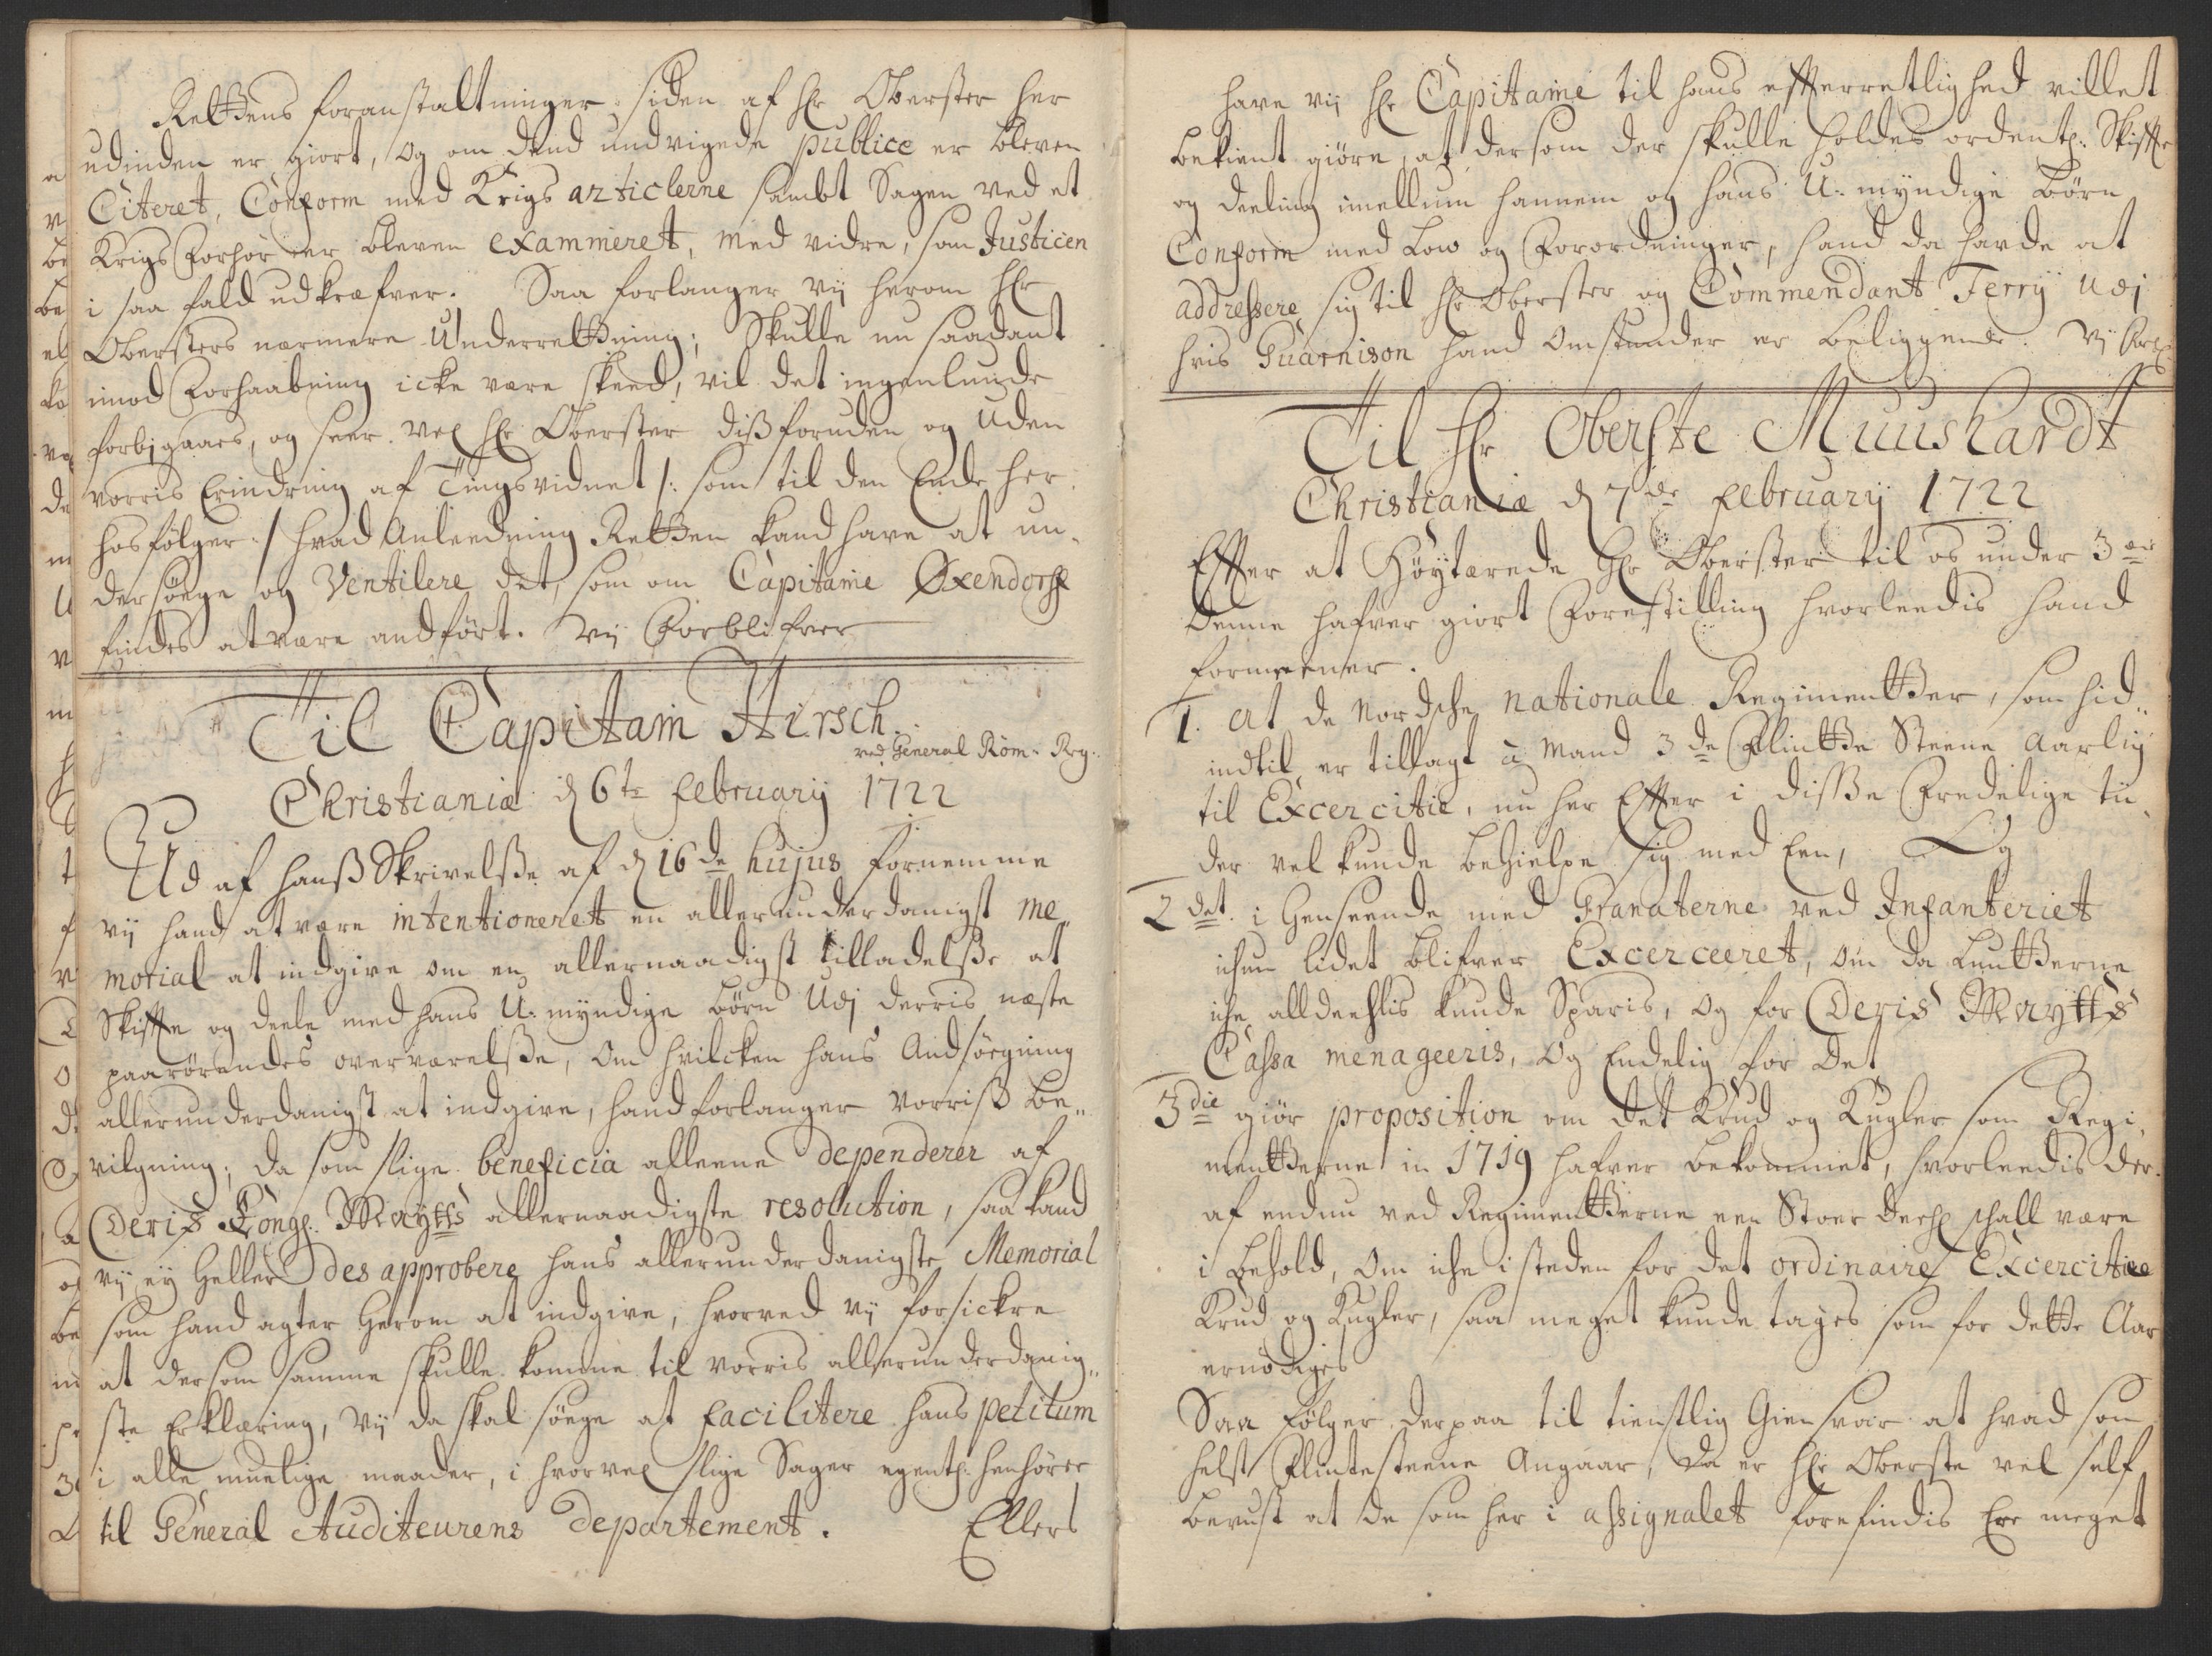 Rettens foranstaltninger siden af hr Oberster her
udinden er giort, og om dend undvigede publice er bleven
Citeret, Conform med Krigs articlerne sambt Sagen ved et
Krigs Forhør er bleven examineret, med vidre, som Justicen
i saa fald udkræfver. Saa forlanger vij herom hr
Obersters nærmere Underretning; Skulle nu saadant
imod Forhaabning icke være skeed, vil det ingenlunde
forbjgaaes, og seer vel hr Oberster dissforuden og uden
vorris Erindring af Tingsvidnet /: som til den Ende her
hosfølger :/ hvad Anleedning Retten kand have at un-
dersøege og Ventilere det, som om Capitaine Øxendorff
findes at være andført. Vij Forblifver
Til Capitain Hirsch.
ved General Røm. Reg:
Christiania d 6te february 1722
Ud af hanss Skrivelsse af d 16de hujus fornemme
vij hand at være intentioneret en allerunderdanigst me„
morial at indgive om en allernaadigst tilladelsse at
Skiffte og deele med hans U-myndige børn Udj derris næste
paarørendes overværelsse, om hvilcken hans Andsøegning
allerunderdanigst at indgive, hand forlanger vorriss be„
vilgning; da som slige beneficia alleene dependerer af
Deris Kongl. Maytts allernaadigste resolution, saa kand
vij ey heller desapprobere hans allerunderdanigste Memorial
som hand agter herom at indgive, hvorved vij forsickre
at dersom samme skulle komme til vorris allerunderdanig„
ste Erklæring, vij da skal søege at facilitere hans petitum
i alle muelige maader, i hvorvel slige Sager egentl. henhører
til General Auditeurens departement. Ellers
have vij hr Capitaine til hans effterretlighed villet
bekient giøre, at dersom der skulle holdes ordentl: Skiffte
og deeling imellum hannem og hans U-myndige børn
Conform med Low og Forordninger, hand da havde at
addressere sig til hr Oberster og Commendant Ferry udj
hvis Guarnison hand omstunder er beliggende. Vij Forbl
Til hr Oberste Muushardt
Christania d 7de february 1722
Effter at Høytærede hr Oberster til os under 3die
denne hafver giort Forestilling hvorleedis hand
formeener.
1. At de Nordsche nationale Regimentter, som hid„
indtil er tillagt à Mand 3de Flintte Steene Aarlig
til Excercitie, nu her Effter i disse Fredelige tii-
der vel kunde behielpe sig med Een, Og
2det. i Henseende med Granaterne ved Infanteriet
ichun lidet blifver Excerceeret, om da Luntterne
iche alldeehlis kunde Sparis, og for Deris Maytts
Cassa menageeris, og Endelig for det
3die giør proposition om det Krud og Kugler som Regi-
mentterne in 1719 hafver bekommet, hvorleedis der-
af endnu ved Regimentterne een Stoer deehl schall være
i behold, om iche isteden for det ordinaire Excercitie
Krud og Kugler, saa meget kunde tages som for dette Aar
ernødiges
Saa følger derpaa til tienstlig Giensvar at hvad som
helst Flintesteene Angaar, da er hr Oberste vel self
bevust at de som her i assignalet forefindis Ere meget